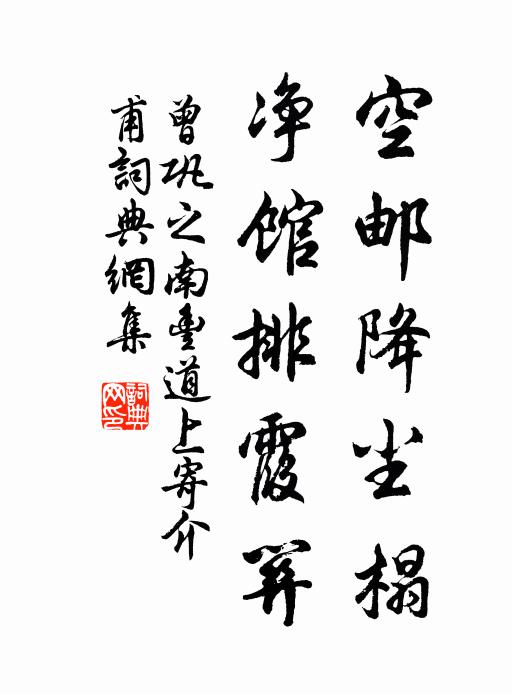 空邮降尘榻
净馆排霞关
曾巩之南豐道上寄介
甫詞典網集
詞典
网印